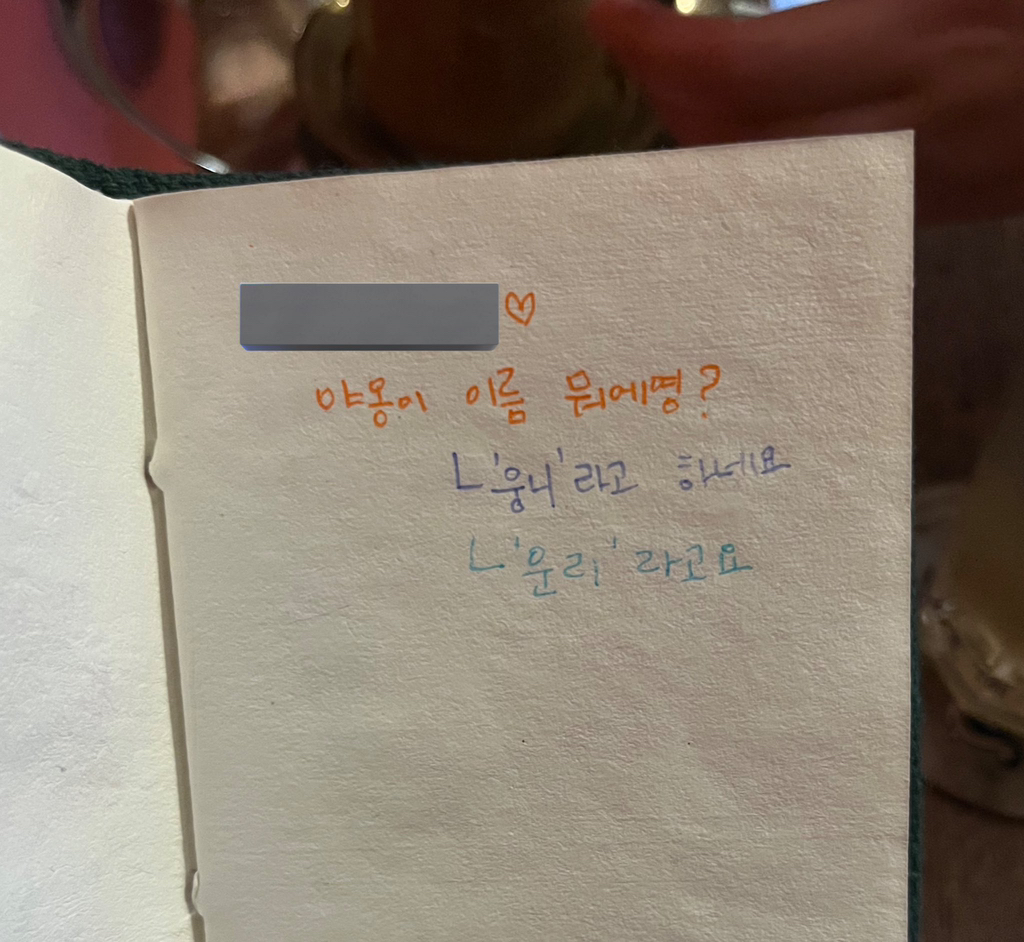 ♡
야옹이 이름 뭐에명?
ㄴ'웅니'라고 하네요
ㄴ'운리'라고요